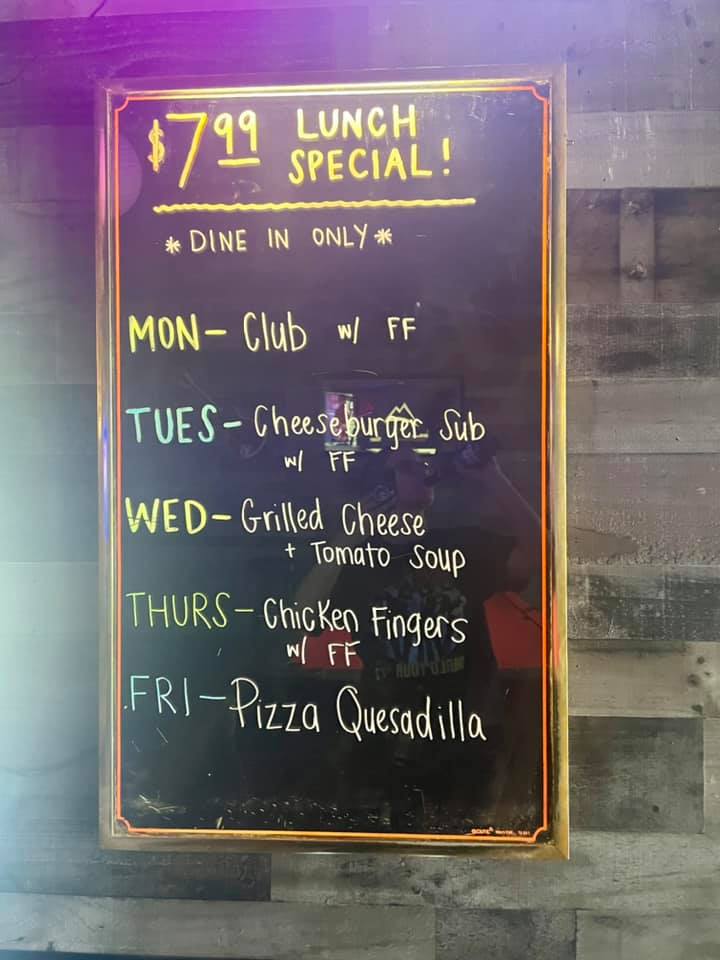 $7.99 LUNCH
SPECIAL!
* DINE IN ONLY *
MON - Club w/ FF
TUES - Cheeseburger Sub
w/ FF
WED - Grilled Cheese
+ Tomato Soup
THURS - Chicken Fingers
w/ FF
FRI - Pizza Quesadilla